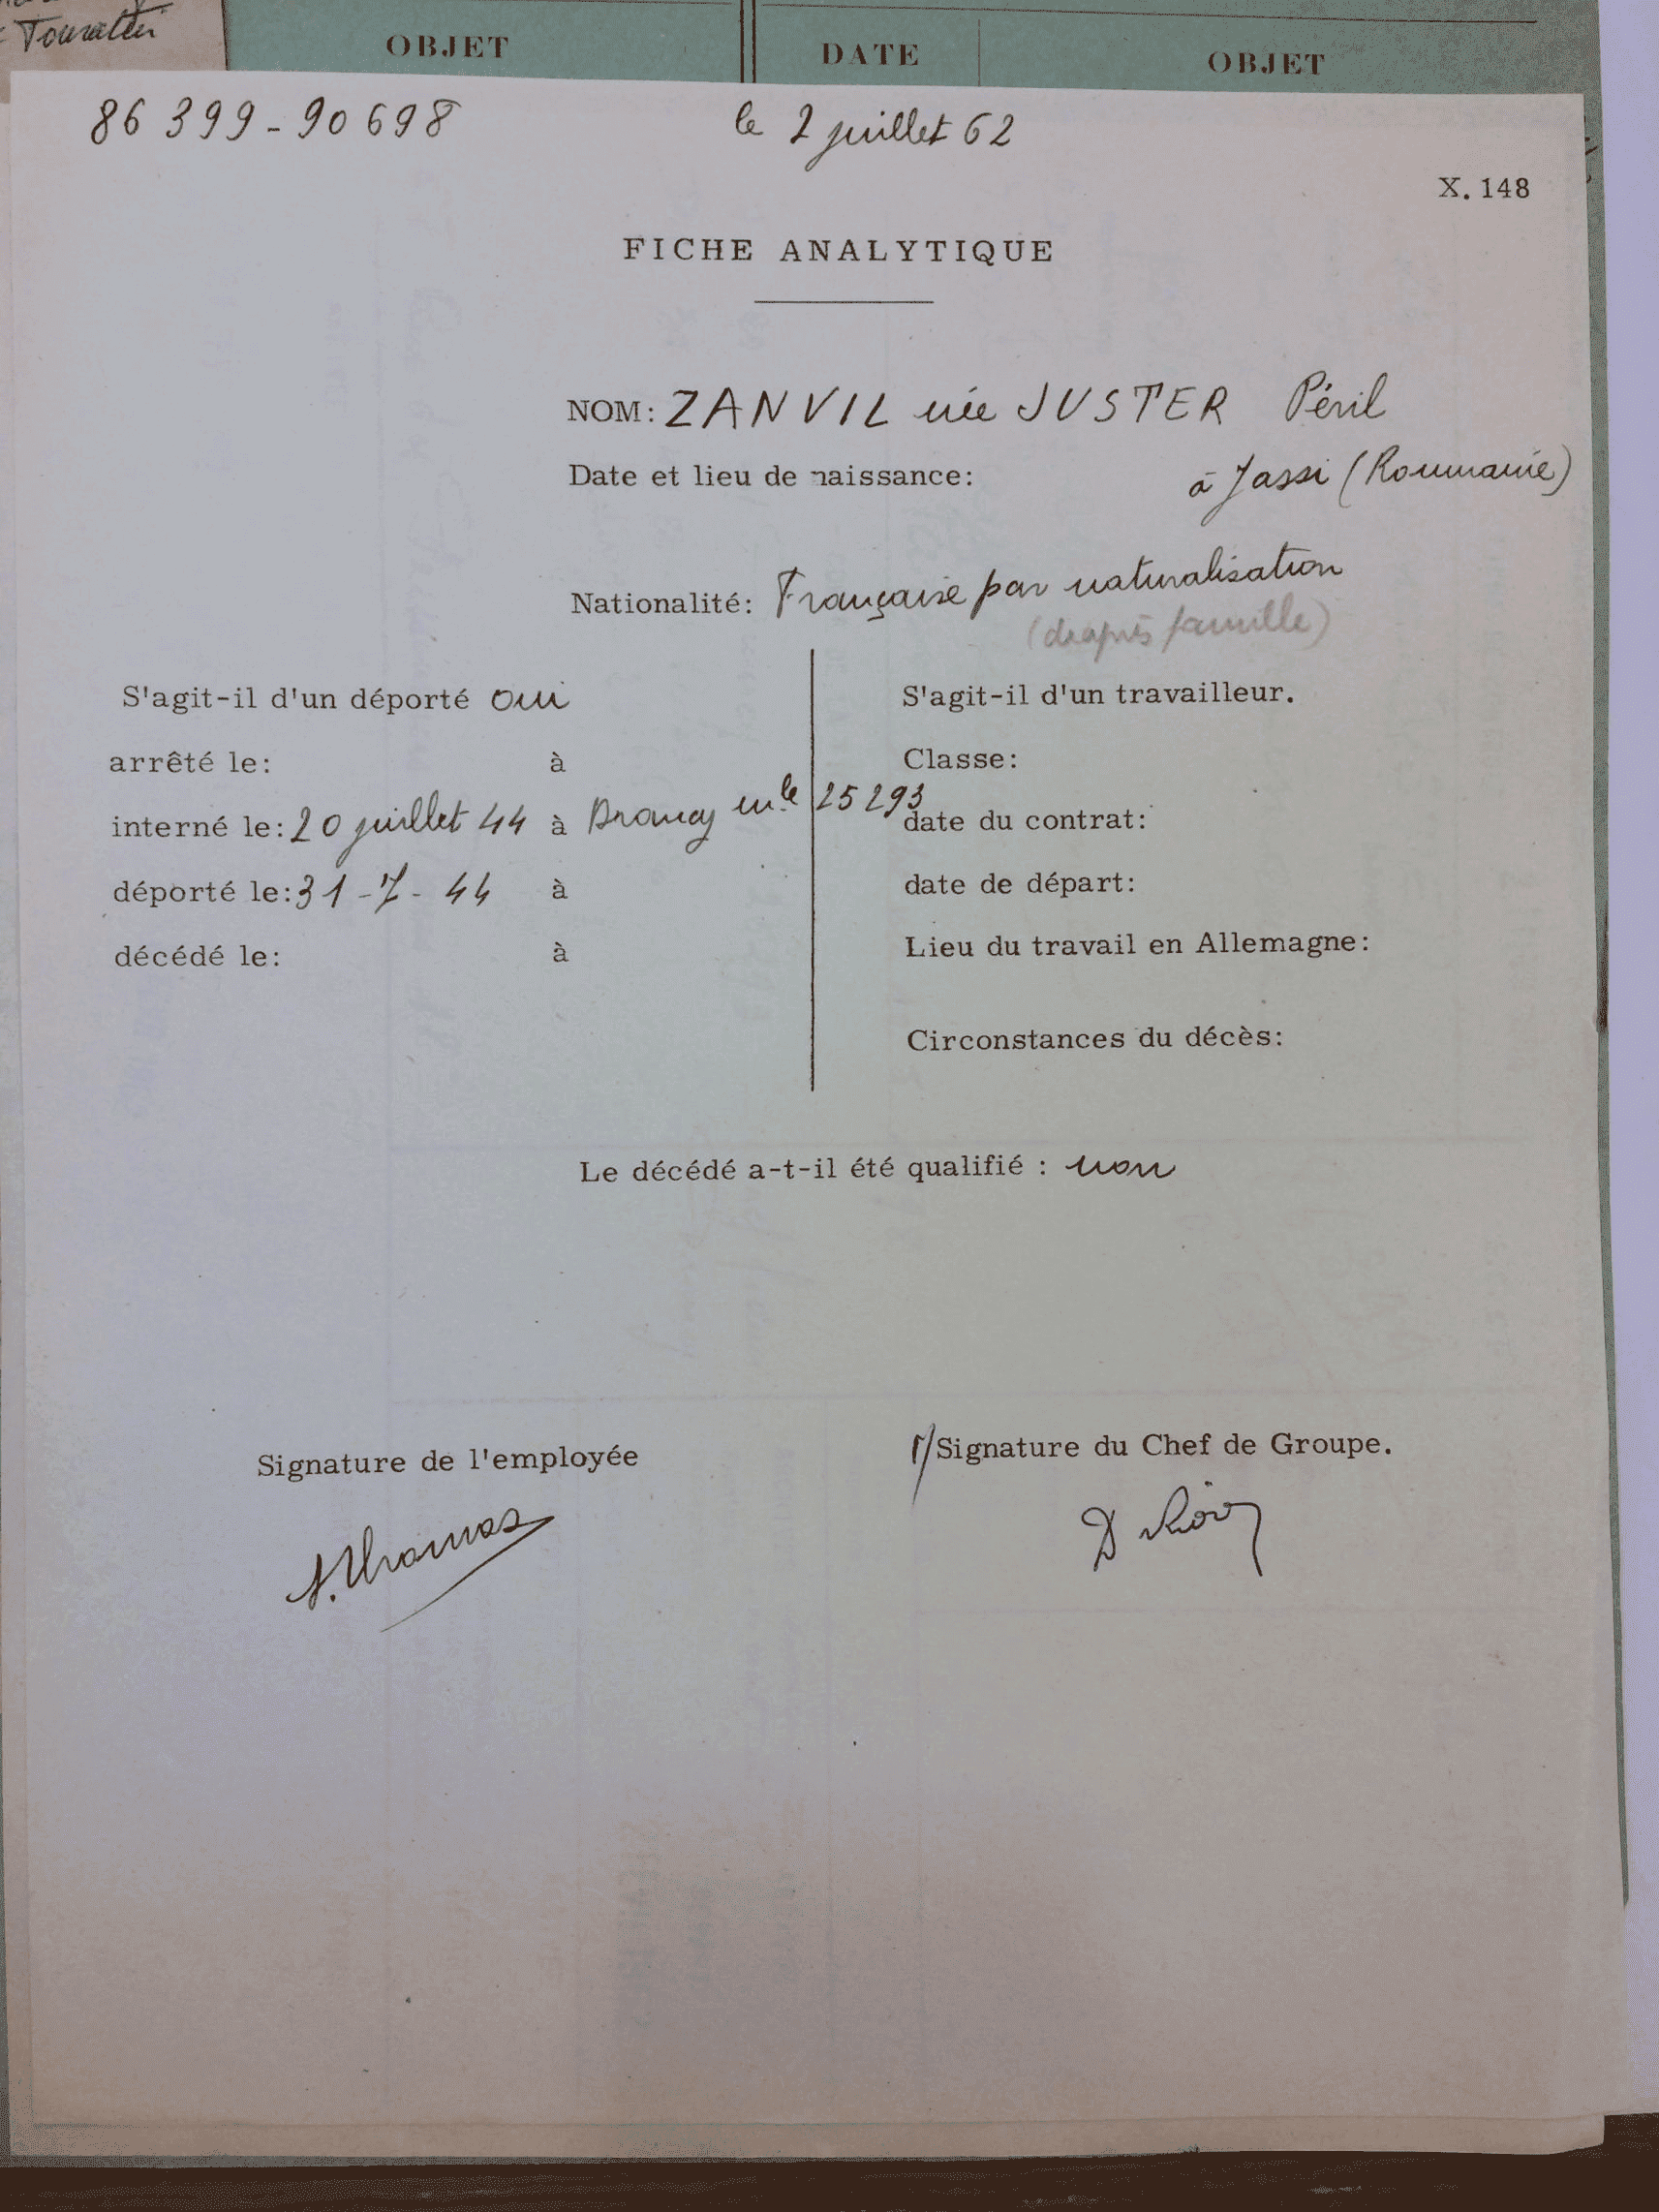 Tourattei
OBJET DATE OBJET
86 399 - 90 698 le 2 juillet 62
X. 148
FICHE ANALYTIQUE
NOM: ZANVIL née JUSTER Péril
Date et lieu de naissance: à Jassi (Roumanie)
Nationalité: Française par naturalisation
(d'après famille)
S'agit-il d'un déporté oui
arrêté le: à
interné le: 20 juillet 44 à Drancy mle 25 293
déporté le: 31-7-44 à
décédé le: à
S'agit-il d'un travailleur.
Classe:
date du contrat:
date de départ:
Lieu du travail en Allemagne:
Circonstances du décès:
Le décédé a-t-il été qualifié : non
Signature de l'employée
Thomas
Signature du Chef de Groupe.